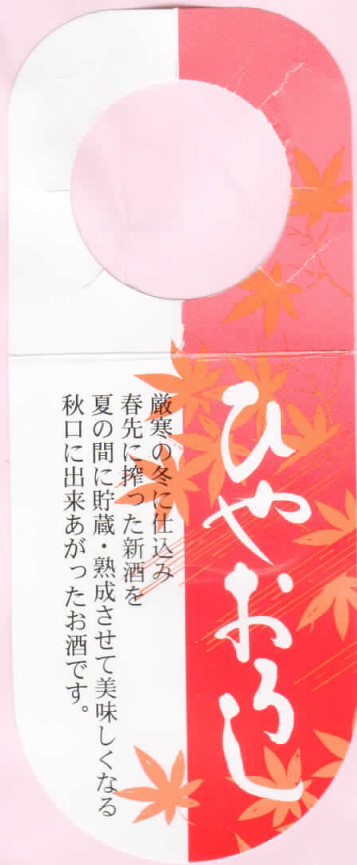 ひやおろし
厳寒の冬に仕込み
春先に搾った新酒を
夏の間に貯蔵・熟成させて美味しくなる
秋口に出来あがったお酒です。